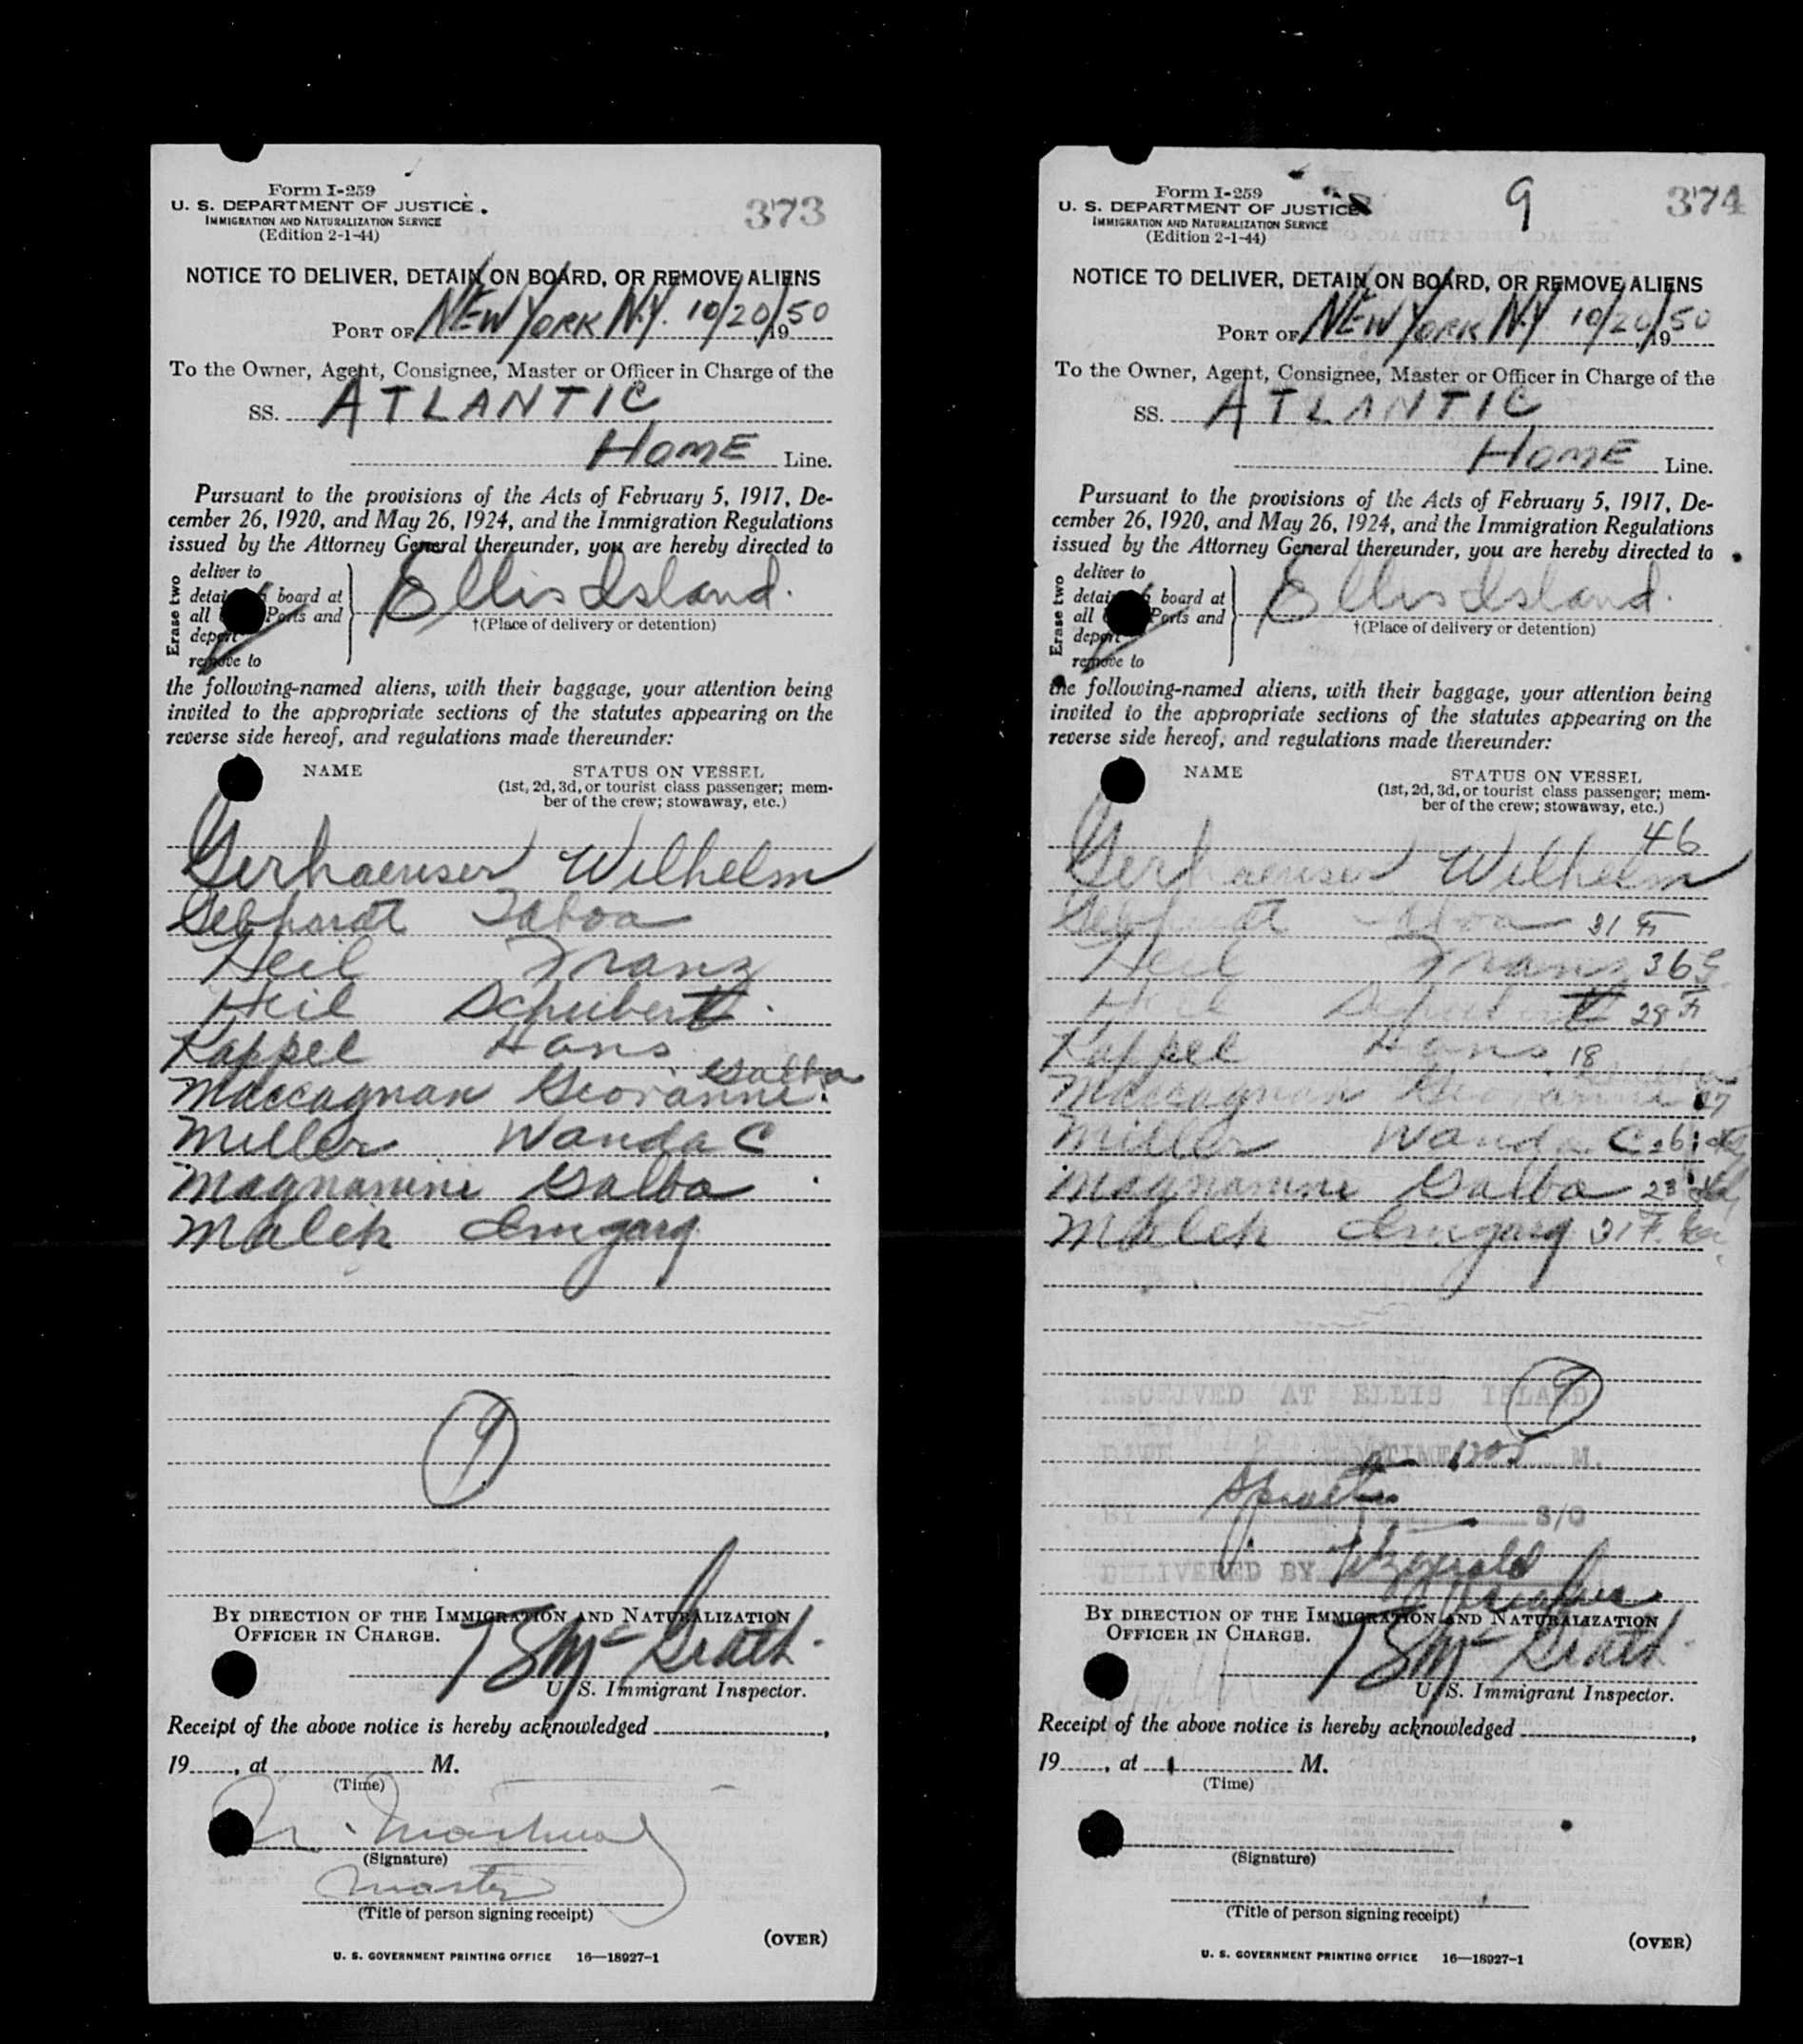 Form I-259
U. S. DEPARTMENT OF JUSTICE
IMMIGRATION AND NATURALIZATION SERVICE
(Edition 2-1-44)
373
NOTICE TO DELIVER, DETAIN ON BOARD, OR REMOVE ALIENS
PORT OF NEW YORK N.Y. 10/20/50, 19
To the Owner, Agent, Consignee, Master or Officer in Charge of the
SS. ATLANTIC
HOME Line.
Pursuant to the provisions of the Acts of February 5, 1917, De-
cember 26, 1920, and May 26, 1924, and the Immigration Regulations
issued by the Attorney General thereunder, you are hereby directed to
Erase two
deliver to
board at
all Ports and
remove to
Ellis Island.
†(Place of delivery or detention)
the following-named aliens, with their baggage, your attention being
invited to the appropriate sections of the statutes appearing on the
reverse side hereof, and regulations made thereunder:
NAME
STATUS ON VESSEL
(1st, 2d, 3d, or tourist class passenger; mem-
ber of the crew; stowaway, etc.)
Gerhaeuser Wilhelm
Gebhardt
Heil Franz
Heil
Kappel Hans
Galba
Maccagnan Giovanni
Miller Wanda C
Magnanini Galba
Malek Irmgarg
9
BY DIRECTION OF THE IMMIGRATION AND NATURALIZATION
OFFICER IN CHARGE.
McGrath
U. S. Immigrant Inspector.
Receipt of the above notice is hereby acknowledged ,
19 , at M.
(Time)
(Signature)
Master
(Title of person signing receipt)
(OVER)
U. S. GOVERNMENT PRINTING OFFICE 16—18927-1
Form I-259
U. S. DEPARTMENT OF JUSTICE
IMMIGRATION AND NATURALIZATION SERVICE
(Edition 2-1-44)
9
374
NOTICE TO DELIVER, DETAIN ON BOARD, OR REMOVE ALIENS
PORT OF NEW YORK N.Y. 10/20/50, 19
To the Owner, Agent, Consignee, Master or Officer in Charge of the
SS. ATLANTIC
HOME Line.
Pursuant to the provisions of the Acts of February 5, 1917, De-
cember 26, 1920, and May 26, 1924, and the Immigration Regulations
issued by the Attorney General thereunder, you are hereby directed to
Erase two
deliver to
board at
all Ports and
remove to
Ellis Island.
†(Place of delivery or detention)
the following-named aliens, with their baggage, your attention being
invited to the appropriate sections of the statutes appearing on the
reverse side hereof, and regulations made thereunder:
NAME
STATUS ON VESSEL
(1st, 2d, 3d, or tourist class passenger; mem-
ber of the crew; stowaway, etc.)
46
Gerhaeuser Wilhelm
Gebhardt 31 F
Heil Franz 36
Heil 28 F
Kappel Hans 18
Maccagnan Giovanni
Miller Wanda C 26
Magnanini Galba 23
Malek Irmgarg 31 F.
RECEIVED AT ELLIS ISLAND
9
DATE TIME 1205 M.
BY S/O
DELIVERED BY Fitzgerald
BY DIRECTION OF THE IMMIGRATION AND NATURALIZATION
OFFICER IN CHARGE.
McGrath
U. S. Immigrant Inspector.
Receipt of the above notice is hereby acknowledged ,
19 , at M.
(Time)
(Signature)
(Title of person signing receipt)
(OVER)
U. S. GOVERNMENT PRINTING OFFICE 16—18927-1